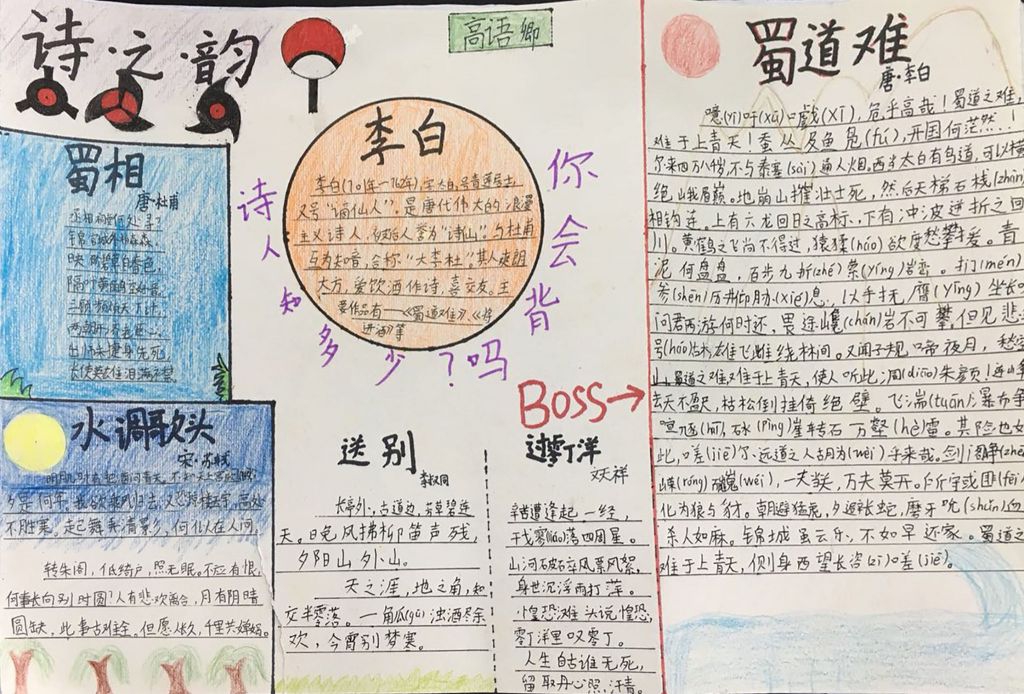 诗·之·韵
高语卿
蜀相
唐·杜甫
丞相祠堂何处寻?
锦官城外柏森森
映阶碧草自春色,
隔叶黄鹂空好音。
三顾频烦天下计,
两朝开
出师未捷身先死,
长使英雄泪满襟
李白
李白(701年—762年),字太白,号青莲居士,
又号“谪仙人”。是唐代伟大的浪漫
主义诗人,被后人誉为“诗仙”。与杜甫
互为知音,合称“大李杜”。其人爽朗
大方,爱饮酒作诗,喜交友。主
要作品有——《蜀道难》,《将
进酒》等
诗人知多少?
你会背吗
BOSS→
水调歌头
宋·苏轼
明月几时有把酒问青天。不知天上宫阙
夕是何年,我欲乘风归去,又恐琼楼玉宇,高处
不胜寒。起舞弄清影,何似在人间,
转朱阁,低绮户,照无眠。不应有恨,
何事长向别时圆?人有悲欢离合,月有阴晴
圆缺,此事古难全。但愿人长久,千里共婵娟。
送别
李叔同
长亭外,古道边,芳草碧连
天。日晚风拂柳笛声残,
夕阳山外山。
天之涯,地之角,知
交半零落。一瓠(gū)浊酒尽余
欢,今宵别梦寒。
过零丁洋
文天祥
辛苦遭逢起一经,
干戈寥(liáo)落四周星。
山河破碎风飘絮,
身世沉浮雨打萍。
惶恐滩头说惶恐,
零丁洋里叹零丁。
人生自古谁无死,
留取丹心照汗青。
蜀道难
唐·李白
噫(yī)吁(xū)嚱(xī),危乎高哉!蜀道之难,
难于上青天!蚕丛及鱼凫(fú),开国何茫然!
尔来四万八千岁,不与秦塞(sài)通人烟。西当太白有鸟道,可以横
绝峨眉巅。地崩山摧壮士死,然后天梯石栈(zhàn)
相钩连。上有六龙回日之高标,下有冲波逆折之回
川。黄鹤之飞尚不得过,猿猱(náo)欲度愁攀援。青
泥何盘盘,百步九折(zhé)萦(yíng)岩峦。扪(mén)
参(shēn)历井仰胁(xié)息,以手抚膺(yīng)坐长
问君西游何时还,畏途巉(chán)岩不可攀,但见悲
号(háo)古木,雄飞雌绕林间。又闻子规啼夜月,愁空
山。蜀道之难难于上青天,使人听此凋(diāo)朱颜!连峰
去天不盈尺,枯松倒挂倚绝壁。飞湍(tuān)瀑布争
喧豗(huī),砯(pīng)崖转石万壑(hè)雷。其险也如
此,嗟(jiē)尔远道之人胡为(wèi)乎来哉。剑阁峥(zhēng)
嵘(róng)而崔嵬(wéi),一夫当关,万夫莫开。所守或匪(fěi)
化为狼与豺。朝避猛虎,夕避长蛇,磨牙吮(shǔn)血
杀人如麻。锦城虽云乐,不如早还家。蜀道之
难于上青天,侧身西望长咨(zī)嗟(jiē)。